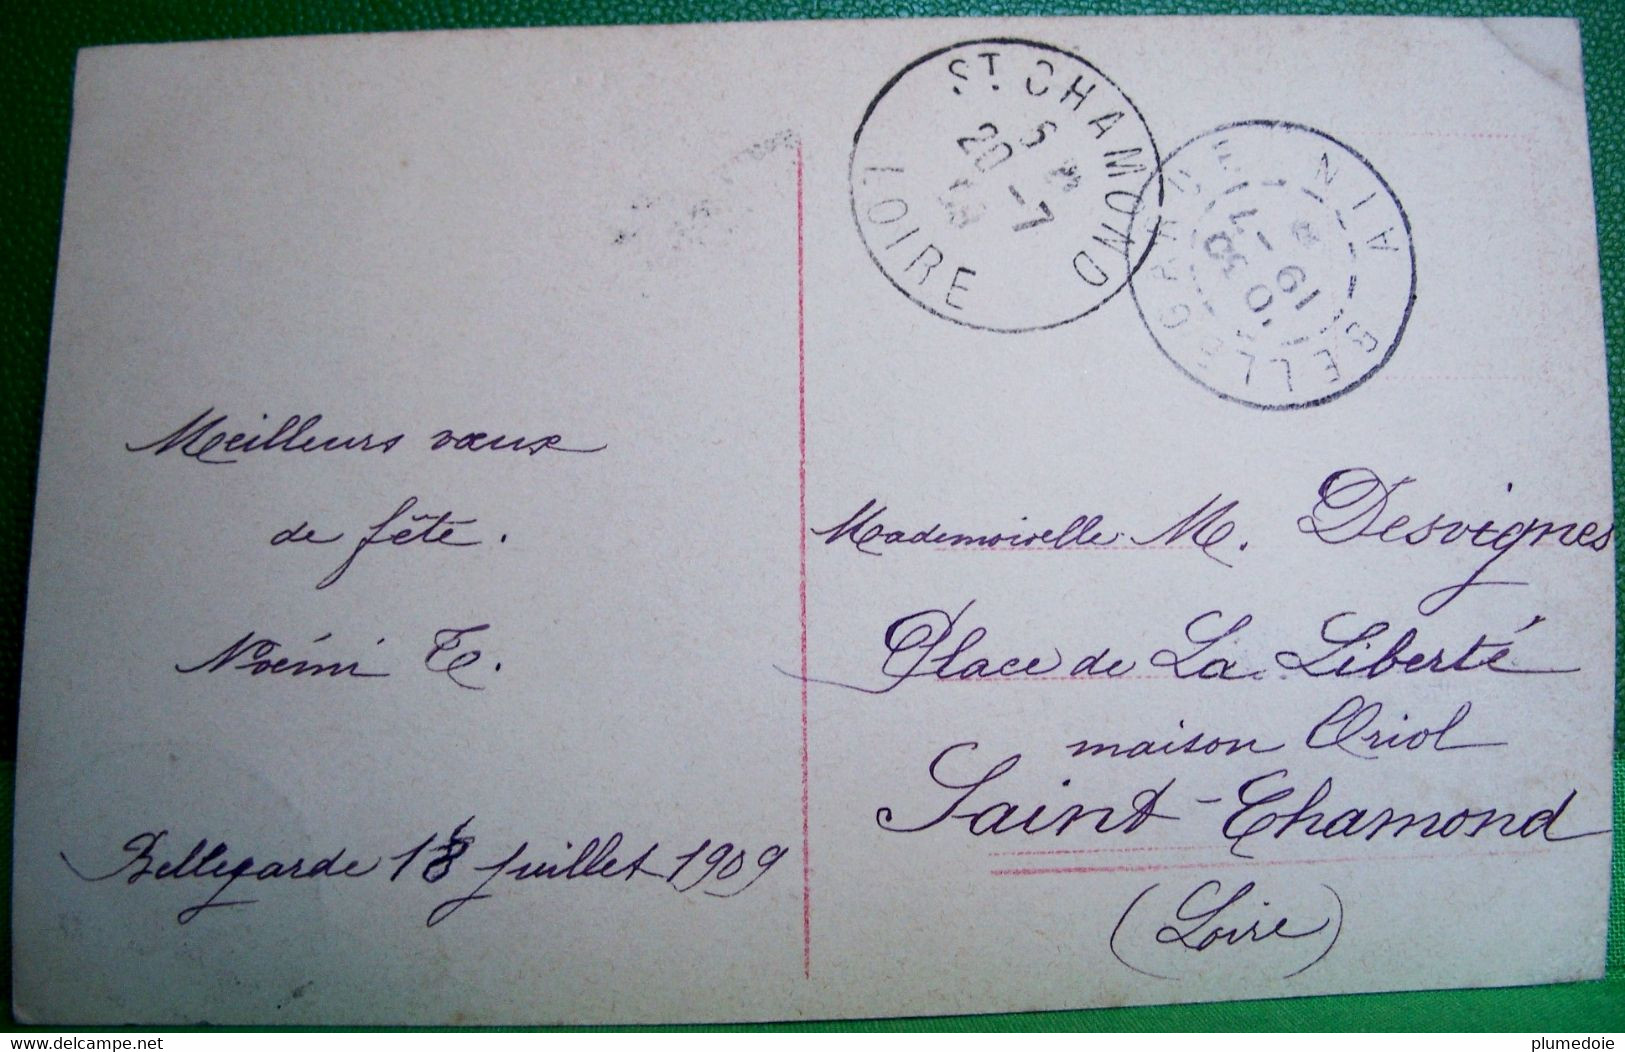 ST. CHAMOND
5
20 -7
LOIRE
BELLEGARDE AIN
19 -7
Meilleurs vœux
de fête.
Noémi T.
Bellegarde 18 juillet 1909
Mademoiselle M. Desvignes
Place de La Liberté
maison Oriol
Saint-Chamond
(Loire)
www.delcampe.net
plumedoie